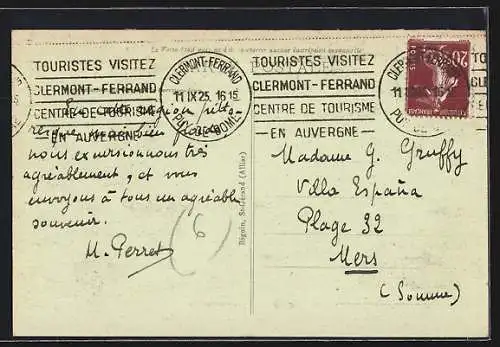 En Franc
CARTE POSTALE
TOURISTES VISITEZ
CLERMONT-FERRAND
CENTRE DE TOURISME
EN AUVERGNE
CLERMONT-FERRAND
11 IX 25. 16 15
PUY-DE-DOME
TOURISTES VISITEZ
CLERMONT-FERRAND
CENTRE DE TOURISME
EN AUVERGNE
20c
POSTES
En cette région pitto-
resque
nous excursionnons très
agréablement, et vous
envoyons à tous un agréable
souvenir.
M. Perret
6
Béguin, St-Menand (Allier)
Madame G. Gruffy
Villa España
Plage 32
Mers
(Somme)